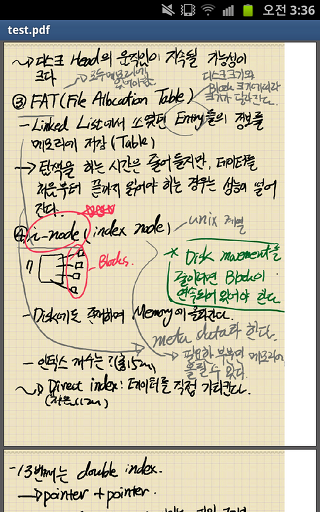 오전 3:36
test.pdf
→ 디스크 Head의 움직임이 지속될 가능성이
크다.
디스크크기와
Block 크기에따라
크기가 달라진다.
③ FAT(File Allocation Table)
- Linked List에서 쓰였던 Entry들의 정보를
메모리에 저장 (Table)
→ 탐색을 하는 시간은 줄어들지만, 데이터를
처음부터 끝까지 읽어야 하는 경우는 성능이 떨어
진다.
④ i-node (index node)
unix 계열
Blocks
* Disk movement를
줄이려면 Block이
연속되어 있어야 한다
- Disk에도 존재하며 Memory에 올라간다.
meta data라 한다.
→ 필요한 부분만 메모리에
올릴 수 있다.
- 인덱스 개수는? (총15개)
→ Direct index : 데이터를 직접 가리킨다.
- 13번째는 double index.
→ pointer + pointer.